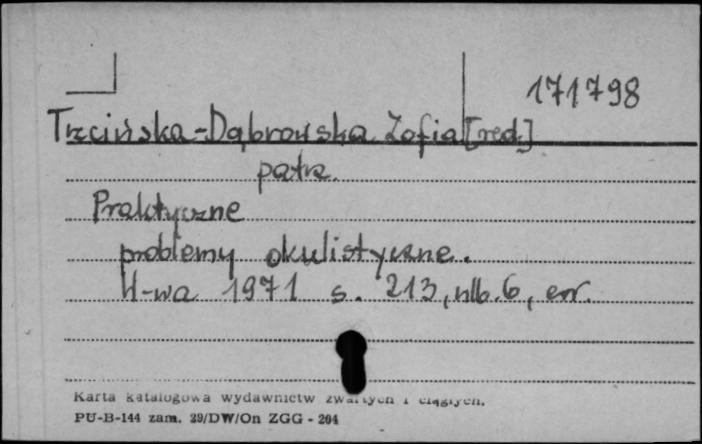 171798
Trzcińska-Dąbrowska Zofia [red.]
patrz
Praktyczne
problemy okulistyczne.
W-wa 1971 s. 213, nlb. 6, err.
Karta katalogowa wydawnictw zwartych i ciągłych.
PU-B-144 zam. 29/DW/On ZGG - 204